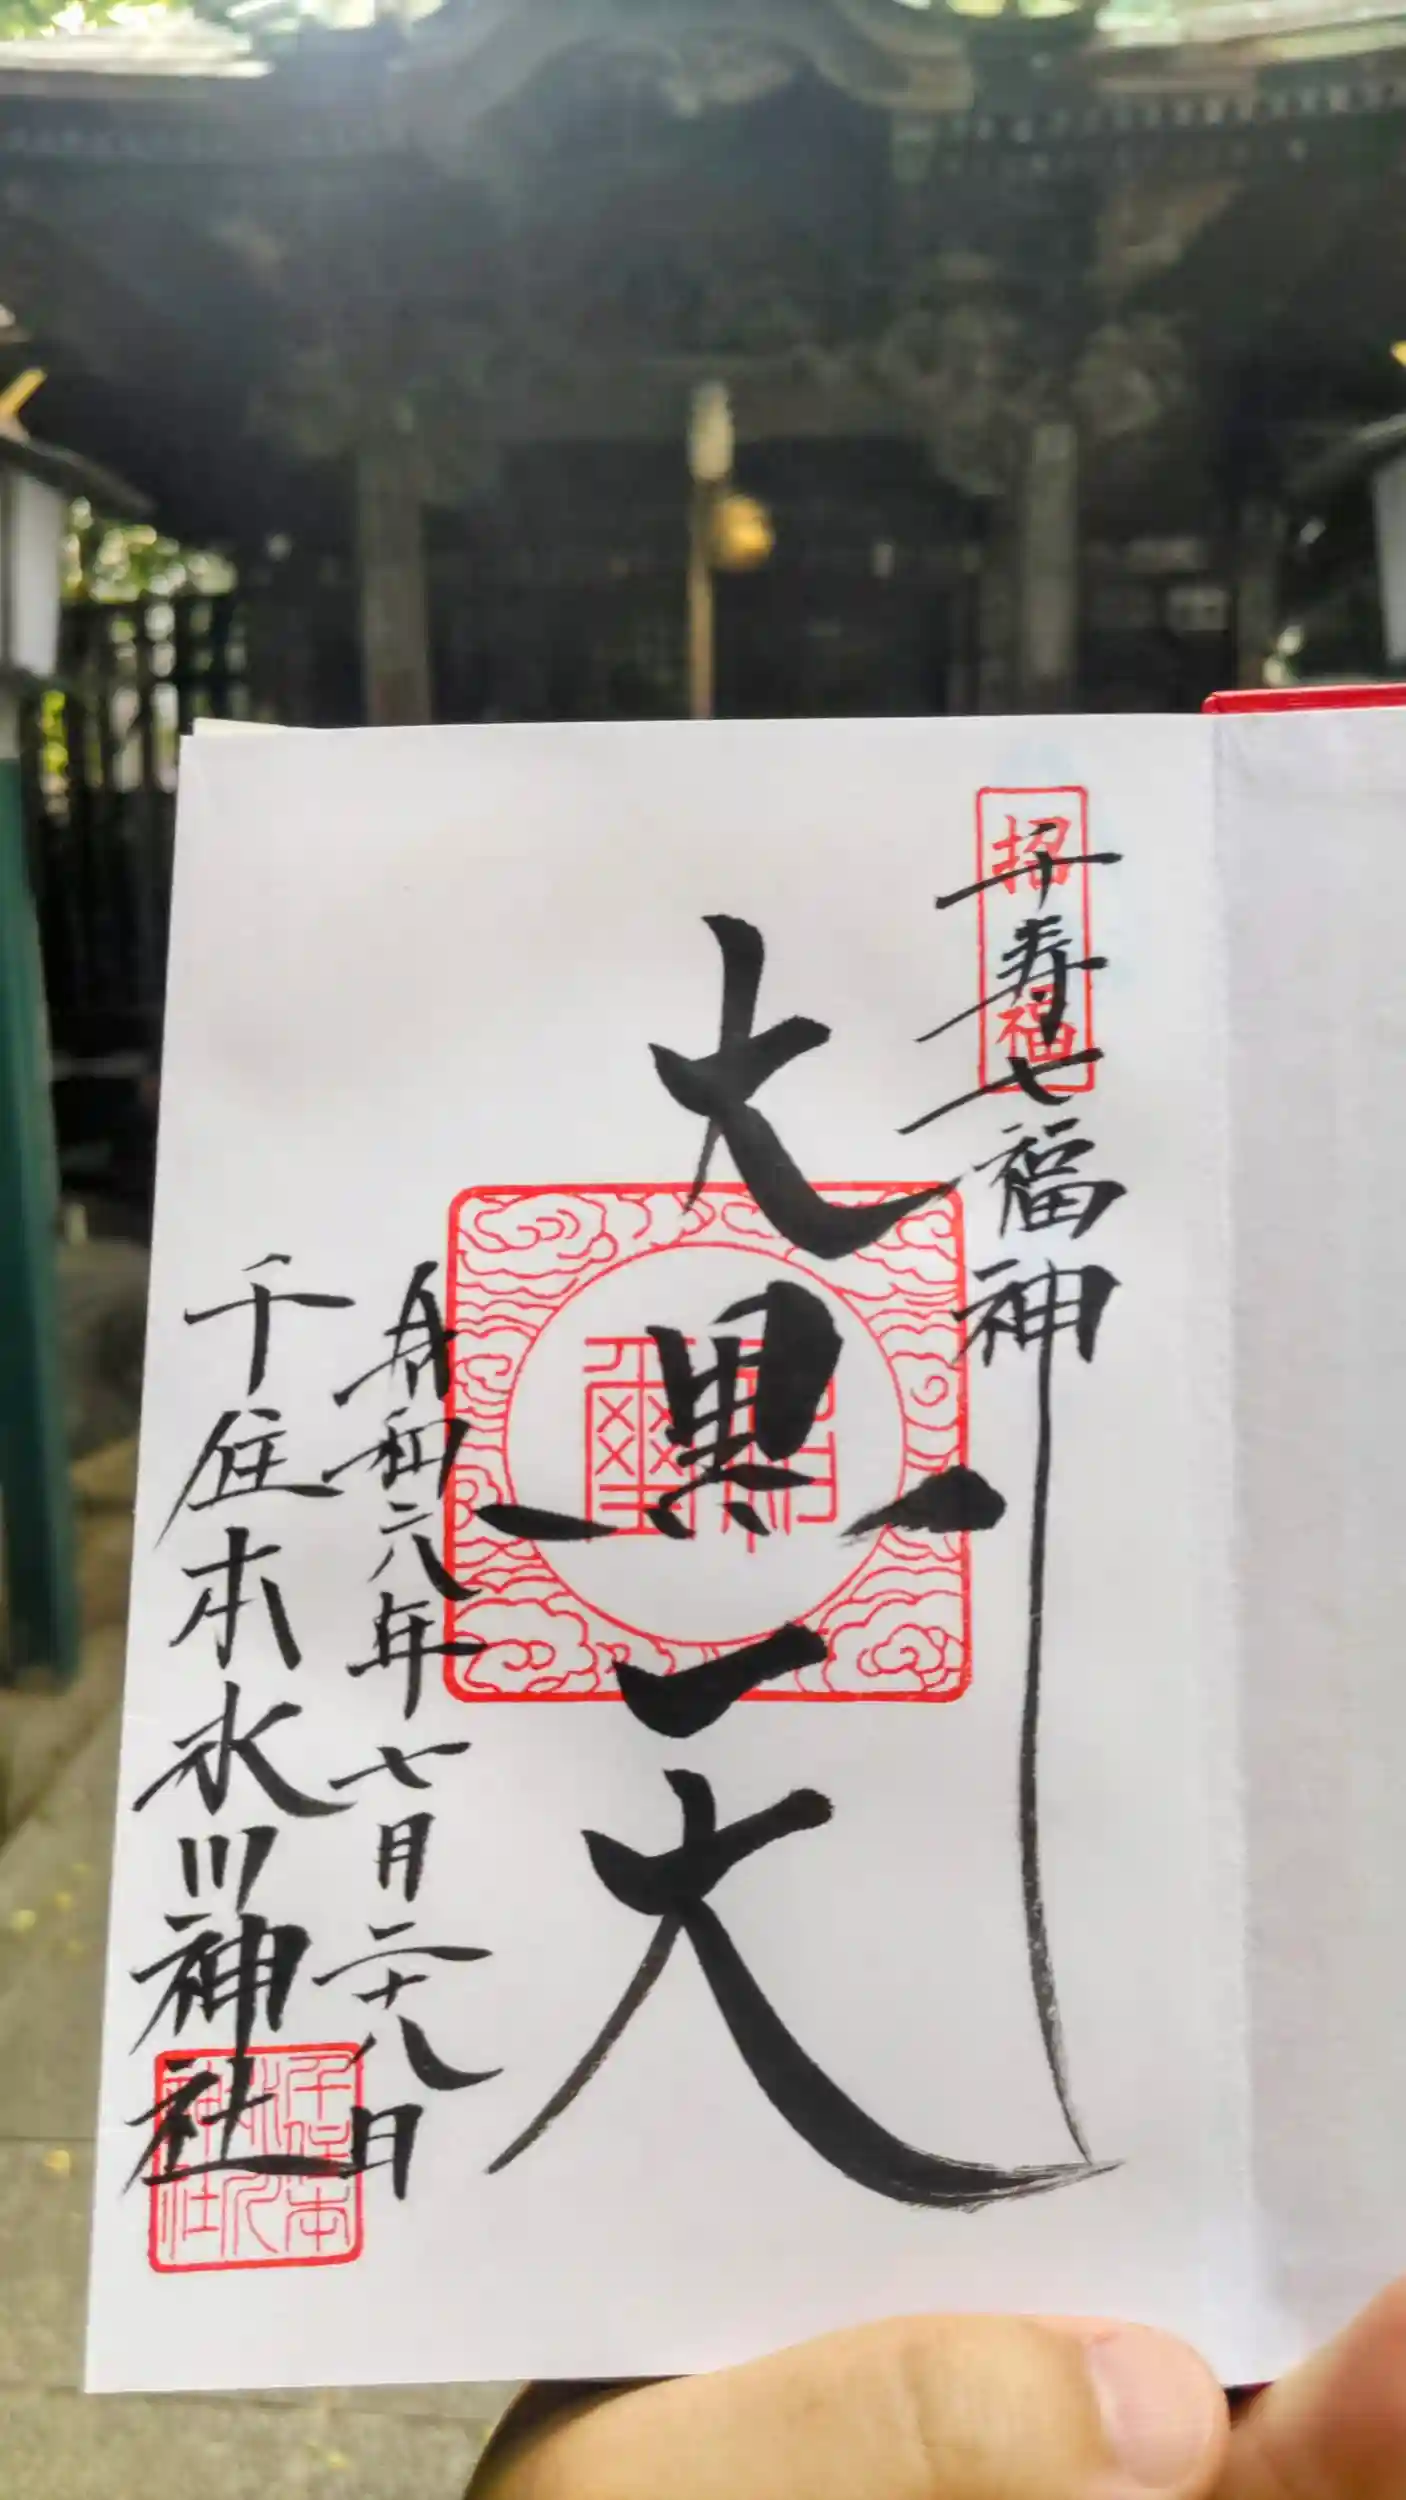 招福
千寿七福神
大黒天
神璽
令和六年七月二十八日
千住本氷川神社
千住本氷川神社